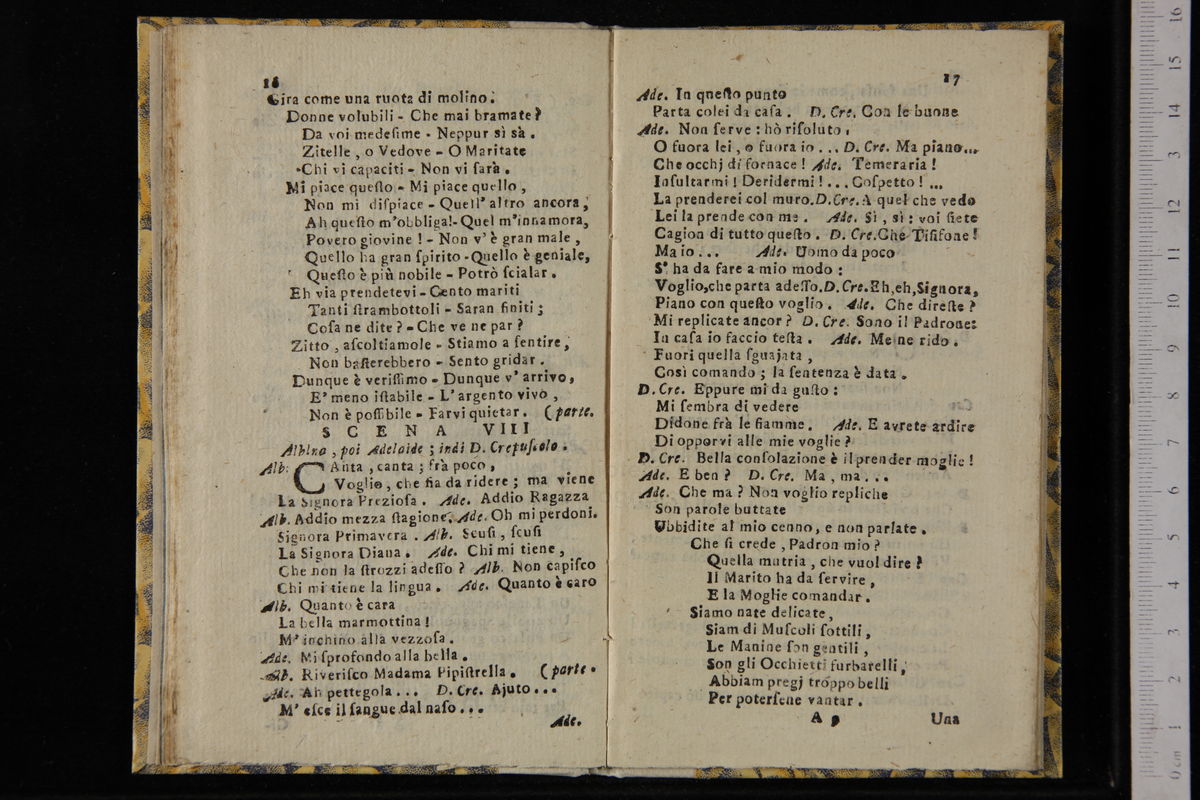 16
Gira come una ruota di molino.
Donne volubili - Che mai bramate?
Da voi medeſime - Neppur sì sà.
Zitelle, o Vedove - O Maritate
Chi vi capaciti - Non vi farà.
Mi piace queſto - Mi piace quello,
Non mi diſpiace - Quell' altro ancora,
Ah queſto m'obbliga!-Quel m'innamora,
Povero giovine! - Non v' è gran male,
Quello ha gran ſpirito -Quello è geniale,
Queſto è più nobile - Potrò ſcialar.
Eh via prendetevi - Cento mariti
Tanti ſtrambottoli - Saran finiti;
Coſa ne dite? - Che ve ne par?
Zitto, aſcoltiamole - Stiamo a ſentire,
Non baſterebbero - Sento gridar.
Dunque è veriſſimo - Dunque v' arrivo,
E' meno iſtabile - L' argento vivo,
Non è poſſibile - Farvi quietar. (parte.
SCENA VIII
Albina, poi Adelaide; indi D. Crepuſcolo.
Alb. CAnta, canta; frà poco,
Voglio, che ſia da ridere; ma viene
La Signora Prezioſa. Ade. Addio Ragazza
Alb. Addio mezza ſtagione. Ade. Oh mi perdoni.
Signora Primavera. Alb. Scuſi, ſcuſi
La Signora Diana. Ade. Chi mi tiene,
Che non la ſtrozzi adeſſo? Alb. Non capiſco
Chi mi tiene la lingua. Ade. Quanto è caro
Alb. Quanto è cara
La bella marmottina!
M' inchino alla vezzoſa.
Ade. Mi ſprofondo alla bella.
Alb. Riveriſco Madama Pipiſtrella. (parte.
Ade. Ah pettegola... D. Cre. Ajuto...
M' eſce il ſangue dal naſo...
Ade.
17
Ade. In queſto punto
Parta colei da caſa. D. Cre. Con le buone
Ade. Non ſerve: hò riſoluto,
O fuora lei, o fuora io... D. Cre. Ma piano...
Che occhj di fornace! Ade. Temeraria!
Inſultarmi! Deridermi!... Coſpetto!...
La prenderei col muro. D. Cre. A quel che vedo
Lei la prende con me. Ade. Sì, sì: voi ſiete
Cagion di tutto queſto. D. Cre. Chè Tiſifone!
Ma io... Ade. Uomo da poco
S' ha da fare a mio modo:
Voglio, che parta adeſſo. D. Cre. Eh, eh, Signora,
Piano con queſto voglio. Ade. Che direſte?
Mi replicate ancor? D. Cre. Sono il Padrone:
In caſa io faccio teſta. Ade. Me ne rido.
Fuori quella ſguajata,
Così comando; la ſentenza è data.
D. Cre. Eppure mi da guſto:
Mi ſembra di vedere
Didone frà le fiamme. Ade. E avrete ardire
Di opporvi alle mie voglie?
D. Cre. Bella conſolazione è il prender moglie!
Ade. E ben? D. Cre. Ma, ma...
Ade. Che ma? Non voglio repliche
Son parole buttate
Ubbidite al mio cenno, e non parlate.
Che ſi crede, Padron mio?
Quella mutria, che vuol dire?
Il Marito ha da ſervire,
E la Moglie comandar.
Siamo nate delicate,
Siam di Muſcoli ſottili,
Le Manine ſon gentili,
Son gli Occhietti furbarelli,
Abbiam pregj troppo belli
Per poterſene vantar.
A 9 Una
0 cm 1 2 3 4 5 6 7 8 9 10 11 12 13 14 15 16